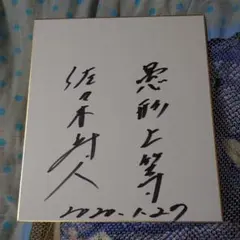 愚形上等
佐々木寿人
2020.1.27